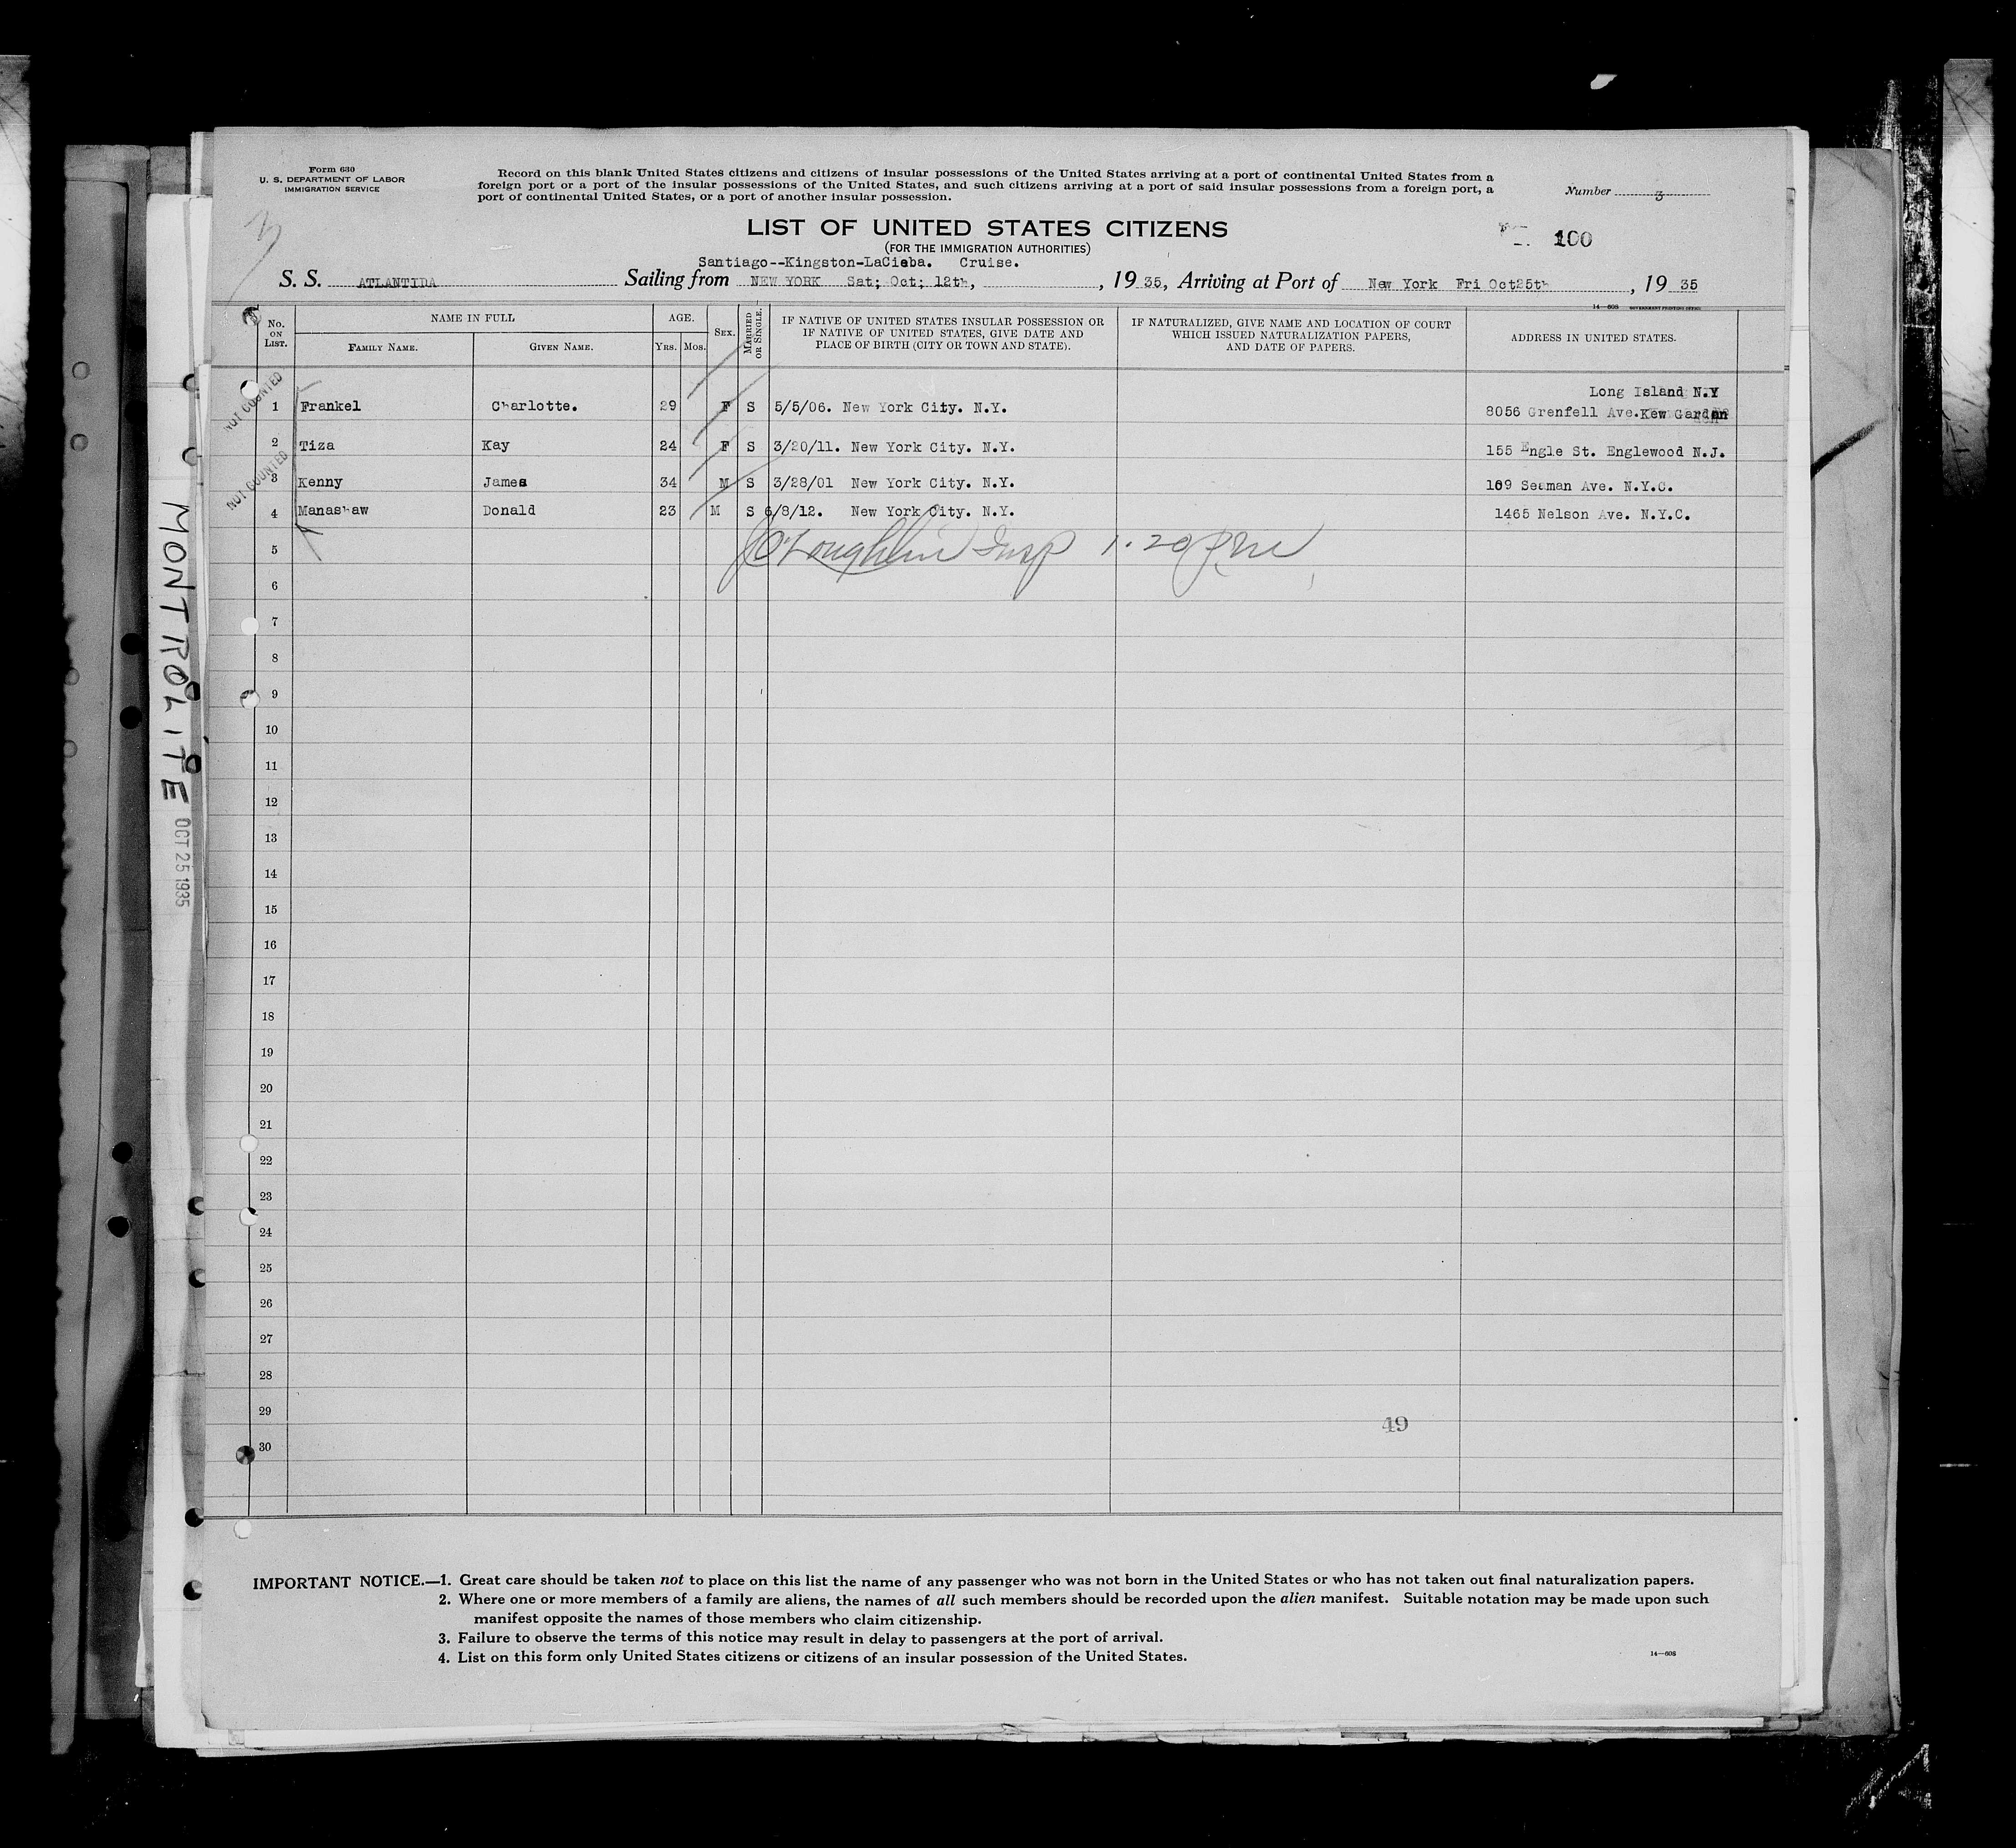 Form 630
U. S. DEPARTMENT OF LABOR
IMMIGRATION SERVICE
Record on this blank United States citizens and citizens of insular possessions of the United States arriving at a port of continental United States from a
foreign port or a port of the insular possessions of the United States, and such citizens arriving at a port of said insular possessions from a foreign port, a
port of continental United States, or a port of another insular possession.
Number 3
LIST OF UNITED STATES CITIZENS
(FOR THE IMMIGRATION AUTHORITIES)
100
Santiago--Kingston-LaCieba. Cruise.
S. S. ATLANTIDA Sailing from NEW YORK Sat; Oct; 12th, , 19 35, Arriving at Port of New York Fri Oct25th , 19 35
14—608 GOVERNMENT PRINTING OFFICE
No. ON LIST. NAME IN FULL FAMILY NAME. GIVEN NAME. AGE. YRS. MOS. SEX. MARRIED OR SINGLE. IF NATIVE OF UNITED STATES INSULAR POSSESSION OR IF NATIVE OF UNITED STATES, GIVE DATE AND PLACE OF BIRTH (CITY OR TOWN AND STATE). IF NATURALIZED, GIVE NAME AND LOCATION OF COURT WHICH ISSUED NATURALIZATION PAPERS, AND DATE OF PAPERS. ADDRESS IN UNITED STATES.
NOT COUNTED
Long Island N.Y
1 Frankel Charlotte. 29 F S 5/5/06. New York City. N.Y. 8056 Grenfell Ave. Kew Garden
2 Tiza Kay 24 F S 3/20/11. New York City. N.Y. 155 Engle St. Englewood N.J.
NOT COUNTED
3 Kenny James 34 M S 3/28/01 New York City. N.Y. 109 Seaman Ave. N.Y.C.
4 Manashaw Donald 23 M S 6/8/12. New York City. N.Y. 1465 Nelson Ave. N.Y.C.
5 O'Loughlin Insp 1.20 pm
6
7
8
9
10
11
12
13
14
15
16
17
18
19
20
21
22
23
24
25
26
27
28
29
49
30
IMPORTANT NOTICE.—1. Great care should be taken not to place on this list the name of any passenger who was not born in the United States or who has not taken out final naturalization papers.
2. Where one or more members of a family are aliens, the names of all such members should be recorded upon the alien manifest. Suitable notation may be made upon such
manifest opposite the names of those members who claim citizenship.
3. Failure to observe the terms of this notice may result in delay to passengers at the port of arrival.
4. List on this form only United States citizens or citizens of an insular possession of the United States.
14—608
MONTROLITE OCT 25 1935